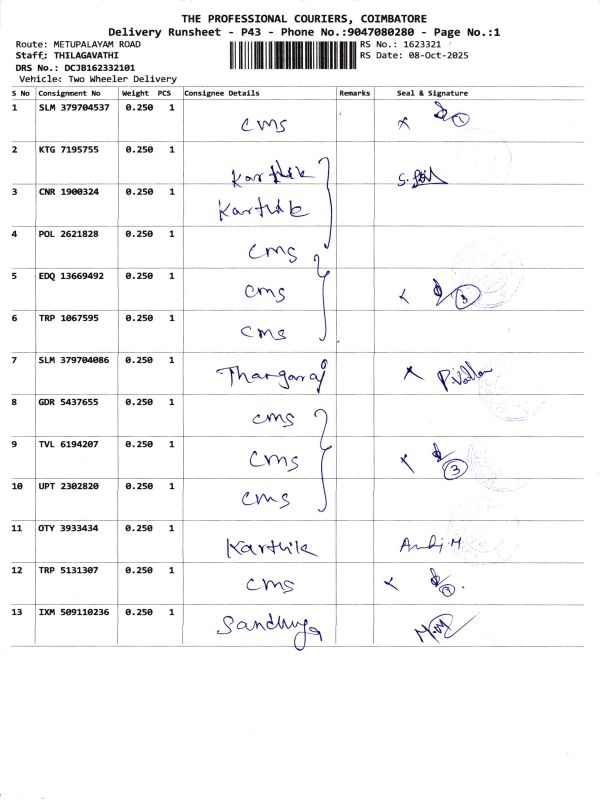 THE PROFESSIONAL COURIERS, COIMBATORE
Delivery Runsheet - P43 - Phone No.:9047080280 - Page No.:1
Route: METUPALAYAM ROAD RS No.: 1623321
Staff: THILAGAVATHI RS Date: 08-Oct-2025
DRS No.: DCJB162332101
Vehicle: Two Wheeler Delivery
S No Consignment No Weight PCS Consignee Details Remarks Seal & Signature
1 SLM 379704537 0.250 1 cms 1
2 KTG 7195755 0.250 1 Karthik
3 CNR 1900324 0.250 1 Karthik
4 POL 2621828 0.250 1 cms
5 EDQ 13669492 0.250 1 cms 3
6 TRP 1067595 0.250 1 cms
7 SLM 379704086 0.250 1 Thangaraj
8 GDR 5437655 0.250 1 cms
9 TVL 6194207 0.250 1 cms 3
10 UPT 2302820 0.250 1 cms
11 OTY 3933434 0.250 1 Karthik
12 TRP 5131307 0.250 1 cms
13 IXM 509110236 0.250 1 Sandhya